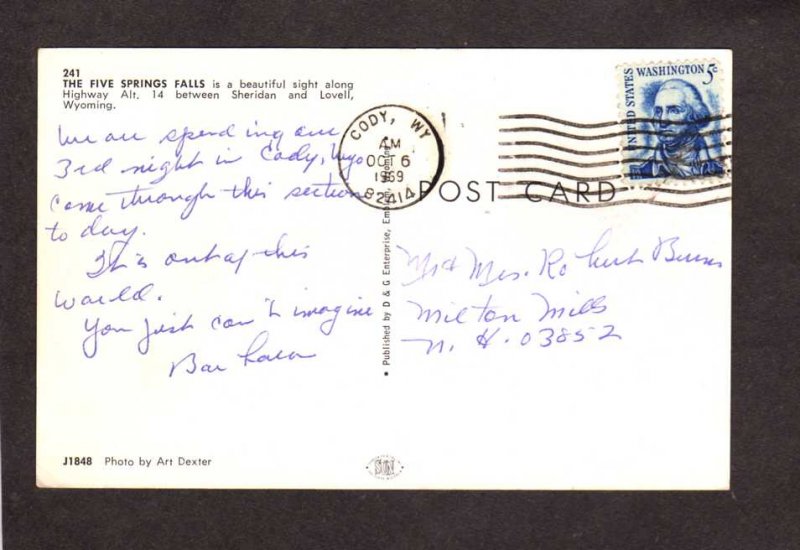 241
THE FIVE SPRINGS FALLS is a beautiful sight along
Highway Alt. 14 between Sheridan and Lovell,
Wyoming.
We are spending our
3rd night in Cody, Wyo
Come through this section
to day.
It is out of this
world.
You just can't imagine
Barbara
J1848 Photo by Art Dexter
• Published by D & G Enterprise, Emblem, Wyoming •
CODY, WY
AM
OCT 6
1969
82414
UNITED STATES
WASHINGTON 5c
POST CARD
Mr & Mrs. Robert Burns
Milton Mills
N. H. 03852
SUN